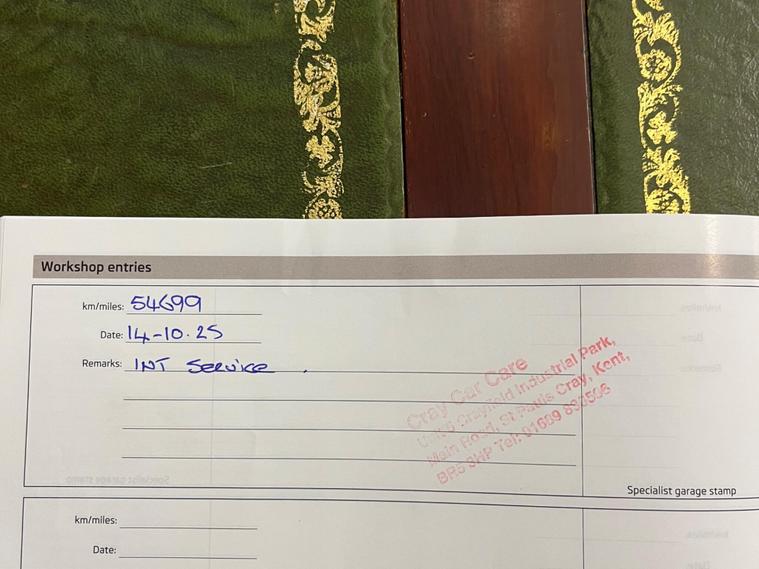 Workshop entries
km/miles: 54699
Date: 14-10.25
Remarks: INT Service .
Cray Car Care
Unit 5 Crayfield Industrial Park,
Main Road, St Pauls Cray, Kent,
BR5 3HP Tel: 01689
Specialist garage stamp
km/miles:
Date: